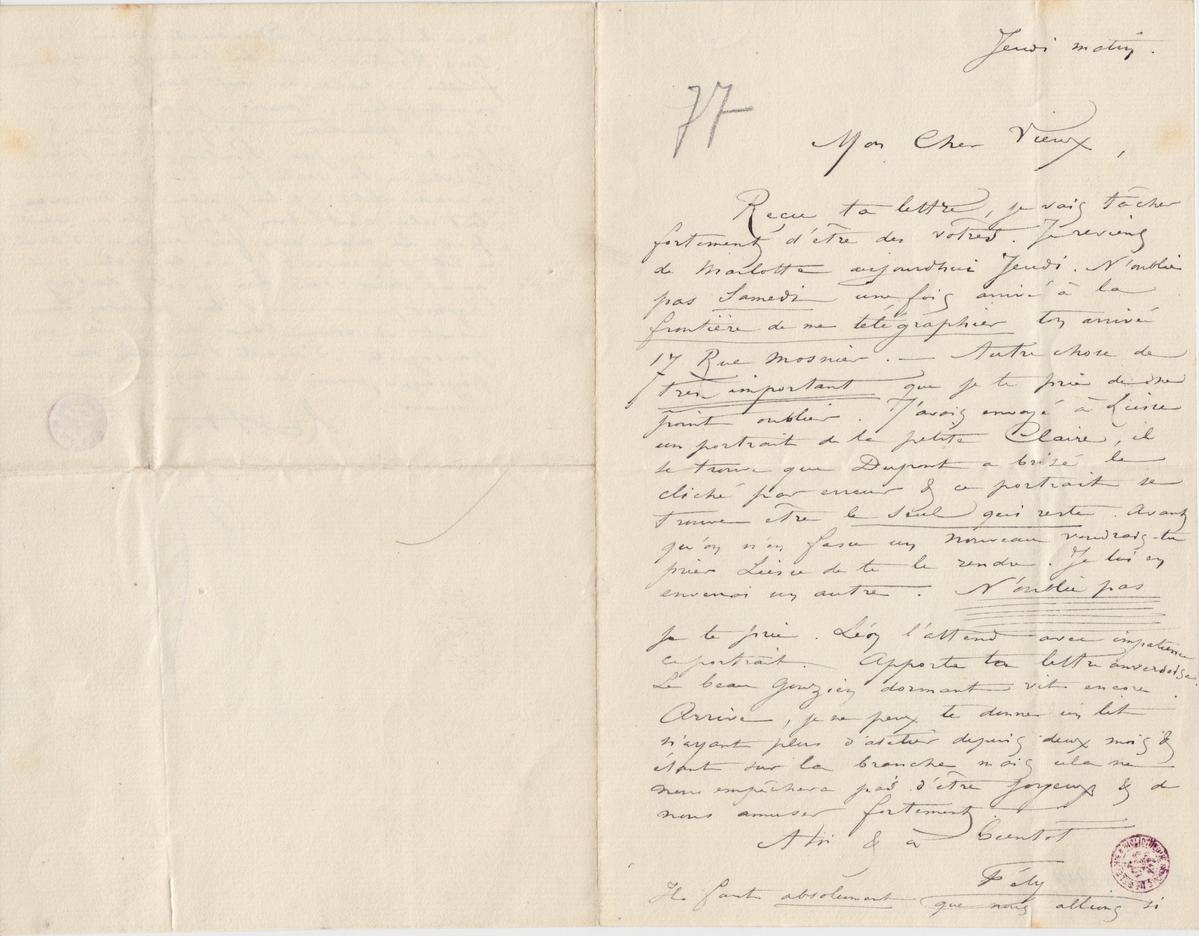 Jeudi matin.
77
Mon Cher Vieux,
Reçu ta lettre, je vais tâcher
fortement d'être des vôtres. Je reviens
de Marlotte aujourdhui Jeudi. N'oublie
pas Samedi une fois arrivé à la
frontière de me télégraphier ton arrivée
17 Rue Mosnier. — Autre chose de
très important que je te prie de ne
point oublier. J'avais envoyé à Liesse
un portrait de la petite Claire, il
se trouve que Dupont a brisé le
cliché par erreur & ce portrait se
trouve être le seul qui reste. Avant
qu'on n'en fasse un nouveau voudrais-tu
prier Liesse de te le rendre. Je lui en
enverrai un autre. N'oublie pas
je te prie. Léon l'attend avec impatience
ce portrait. Apporte ta lettre
Le beau Gouzien dormant vit encore.
Arrive, je ne peux te donner un lit
n'ayant plus d'atelier depuis deux mois &
étant sur la branche mais cela ne
nous empêchera pas d'être joyeux & de
nous amuser fortement.
A toi & à bientot
Fély
Il faut absolument que nous allions si